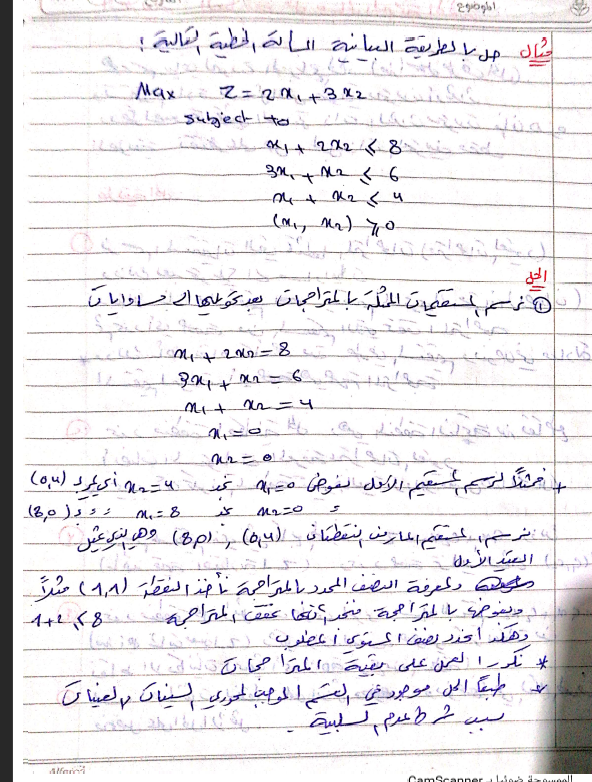 الموضوع
مثال حل بالطريقة البيانية المسألة الخطية التالية :
Max Z = 2x₁ + 3x₂
subject to
x₁ + 2x₂ ≤ 8
3x₁ + x₂ ≤ 6
x₁ + x₂ ≤ 4
(x₁, x₂) ≥ 0
الحل
① نرسم المستقيمات الممثلة بالمتراجحات بعد تحويلها إلى مساوايات
x₁ + 2x₂ = 8
3x₁ + x₂ = 6
x₁ + x₂ = 4
x₁ = 0
x₂ = 0
+ فمثلاً لرسم المستقيم الأول نفوض x₁=0 نجد x₂=4 أي يمر بـ (0,4)
x₂=0 نجد x₁=8 (8,0)
نرسم المستقيم المار من النقطتان (0,4) , (8,0) وهي الذي يمثل
القيد الأول
ولمعرفة النصف المحدد بالمتراجحة نأخذ النقطة (1,1) مثلاً
ونعوضها بالمتراجحة فنجد أنها تحقق المتراجحة 1+2 ≤ 8
وهكذا نحدد نصف المستوي المطلوب
* نكرر العمل على بقية المتراجحات
* طبعاً الحل موجود في القسم الموجب لمحوري السينات والعينات
بسبب شرط عدم السلبية
CamScanner الممسوحة ضوئيا بـ